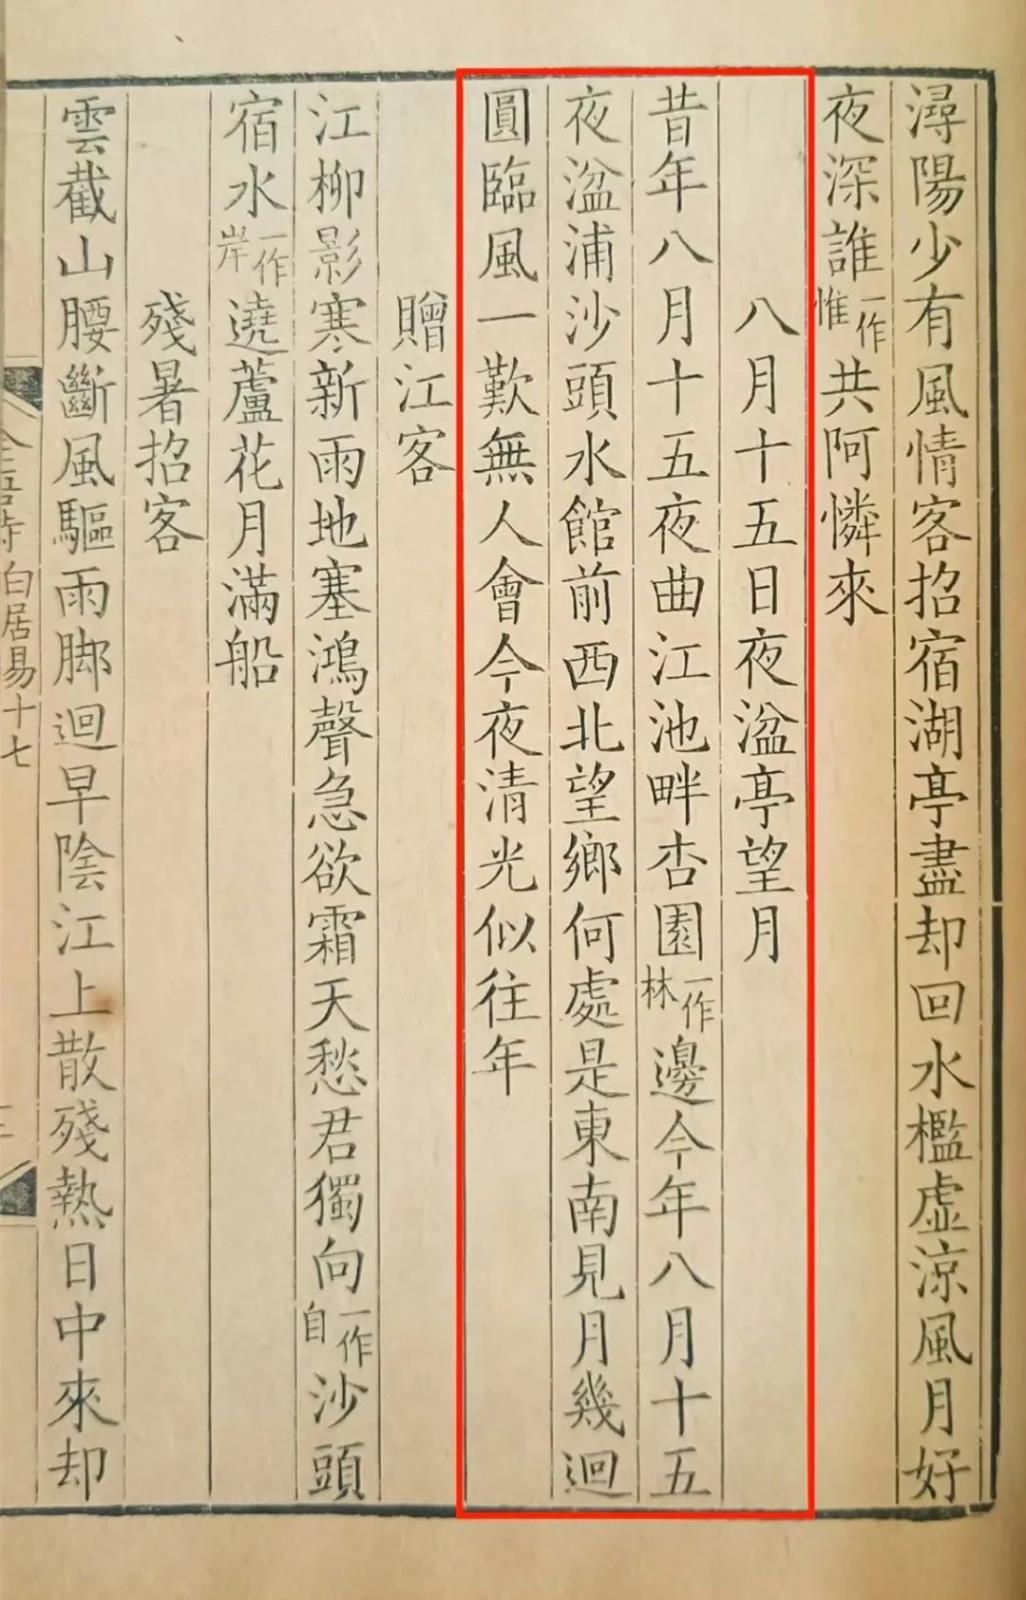 潯陽少有風情客招宿湖亭盡却回水檻虛涼風月好
夜深誰一作惟共阿憐來
八月十五日夜湓亭望月
昔年八月十五夜曲江池畔杏園一作林邊今年八月十五
夜湓浦沙頭水館前西北望鄉何處是東南見月幾迴
圓臨風一歎無人會今夜清光似往年
贈江客
江柳影寒新雨地塞鴻聲急欲霜天愁君獨向一作自沙頭
宿水一作岸遶蘆花月滿船
殘暑招客
雲截山腰斷風驅雨脚迴早陰江上散殘熱日中來却
全唐詩 白居易十七